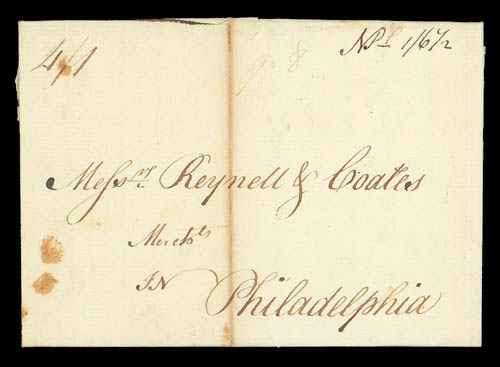 4/1
NPt 1/6 1/2
9 = 8
Messrs Reynell & Coates
Merchts
IN
Philadelphia